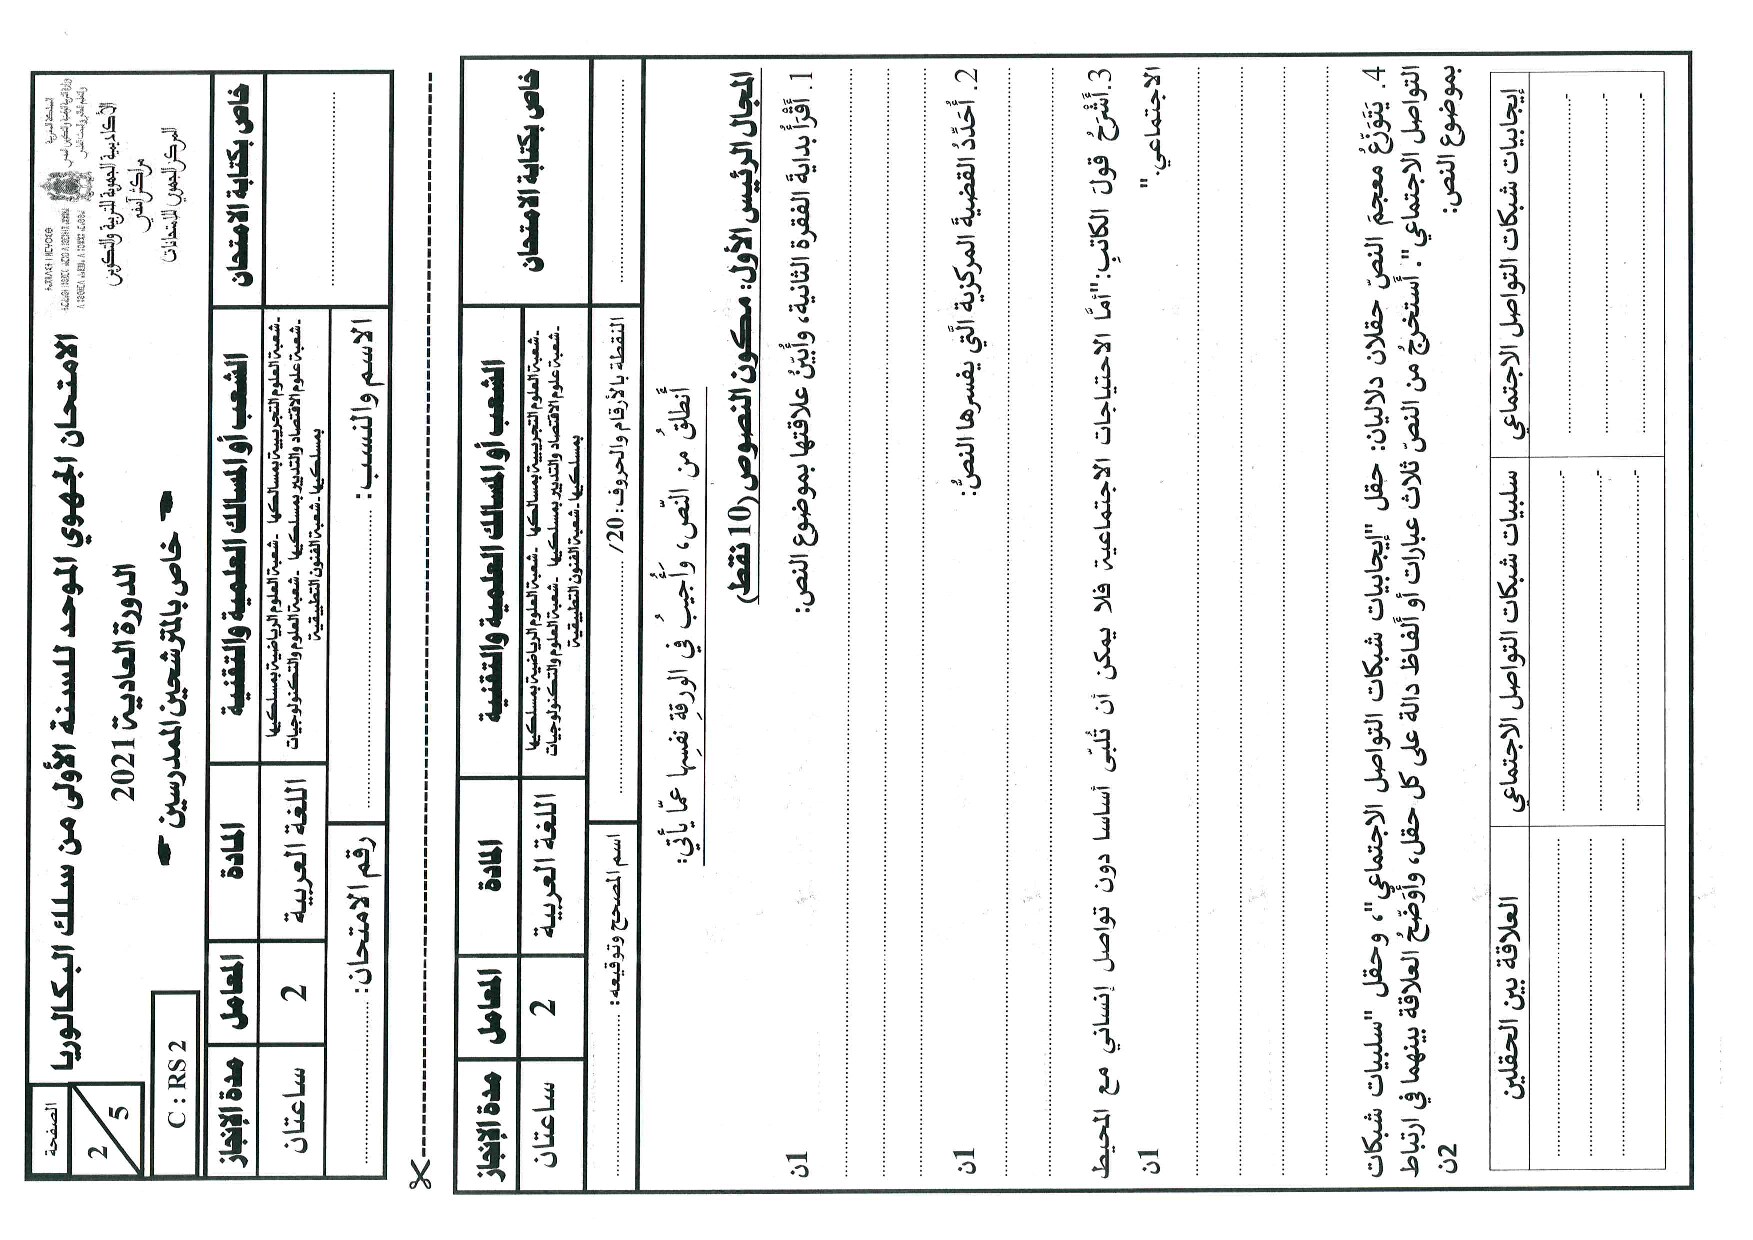 الصفحة
2
5
C : RS 2
الامتحان الجهوي الموحد للسنة الأولى من سلك البكالوريا
الدورة العادية 2021
خاص بالمترشحين الممدرسين
الأكاديمية الجهوية للتربية والتكوين
مراكش آسفي
المركز الجهوي للامتحانات
خاص بكتابة الامتحان
الشعب أو المسالك العلمية والتقنية
المادة
المعامل
مدة الإنجاز
-شعبة العلوم التجريبية بمسالكها -شعبة العلوم الرياضية بمسلكيها
-شعبة علوم الاقتصاد والتدبير بمسلكيها -شعبة العلوم والتكنولوجيات
بمسلكيها -شعبة الفنون التطبيقية
اللغة العربية
2
ساعتان
الاسم والنسب: ..............................
رقم الامتحان: ..............................
خاص بكتابة الامتحان
الشعب أو المسالك العلمية والتقنية
المادة
المعامل
مدة الإنجاز
-شعبة العلوم التجريبية بمسالكها -شعبة العلوم الرياضية بمسلكيها
-شعبة علوم الاقتصاد والتدبير بمسلكيها -شعبة العلوم والتكنولوجيات
بمسلكيها -شعبة الفنون التطبيقية
اللغة العربية
2
ساعتان
النقطة بالأرقام والحروف: 20/ ..............................
اسم المصحح وتوقيعه: ..............................
أَنطلقُ من النصّ، وَأُجيبُ في الورقةِ نفسِها عمّا يأتي:
المجال الرئيس الأول: مكون النصوص (10 نقط)
1. أَقْرَأُ بدايةَ الفقرة الثانية، وأُبَيّنُ علاقتها بموضوع النص: 1ن
2. أُحَدِّدُ القضيةَ المركزية الَّتي يفسرها النصُّ: 1ن
3.أَشْرَحُ قولَ الكاتبِ:"أمَّا الاحتياجات الاجتماعية فلا يمكن أن تُلبّى أساسا دون تواصل إنساني مع المحيط
الاجتماعي." 1ن
4. يَتَوَزَّعُ معجمَ النصّ حقلان دلاليان: حقل "إيجابيات شبكات التواصل الاجتماعي"، وحقل "سلبيات شبكات
التواصل الاجتماعي". أَستخرجُ من النصّ ثلاث عبارات أو ألفاظ دالة على كل حقل، وأوَضّحُ العلاقة بينهما في ارتباط
بموضوع النص: 2ن
إيجابيات شبكات التواصل الاجتماعي
سلبيات شبكات التواصل الاجتماعي
العلاقة بين الحقلين